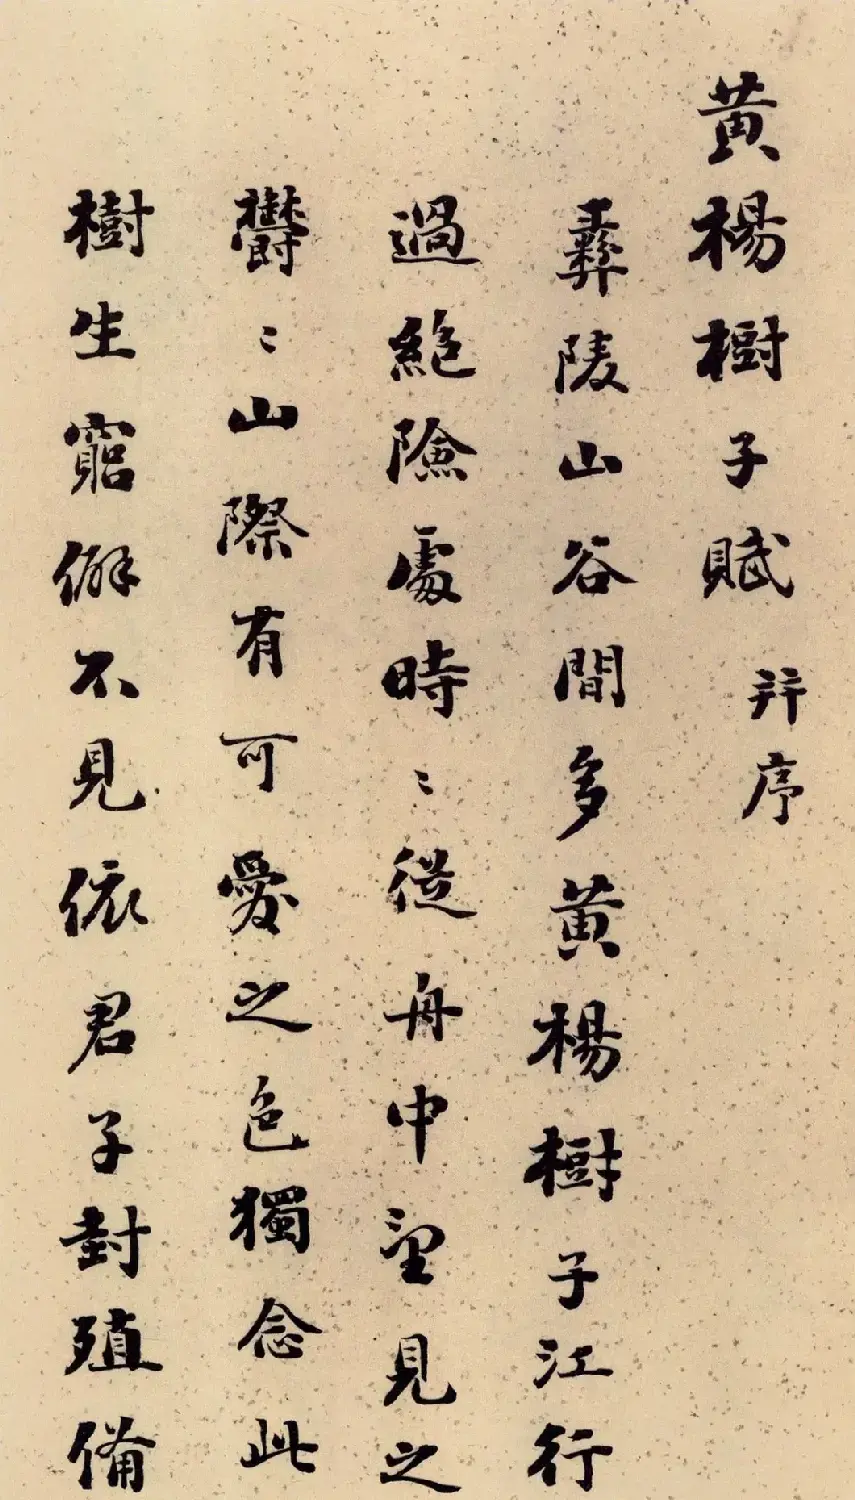 黃楊樹子賦 并序
彝陵山谷間多黃楊樹子江行
過絕險處時〻從舟中望見之
鬱〻山際有可愛之色獨念此
樹生窮僻不見依君子封殖備